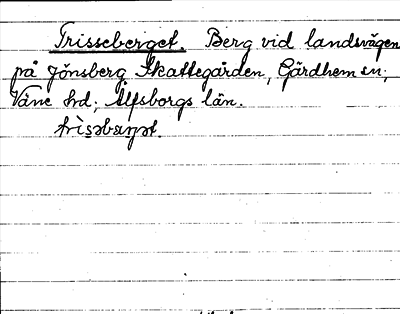 Trisseberget. Berg vid landsvägen
på Jönsberg Skattegården, Gärdhem sn;
Väne hd; Älfsborgs län.